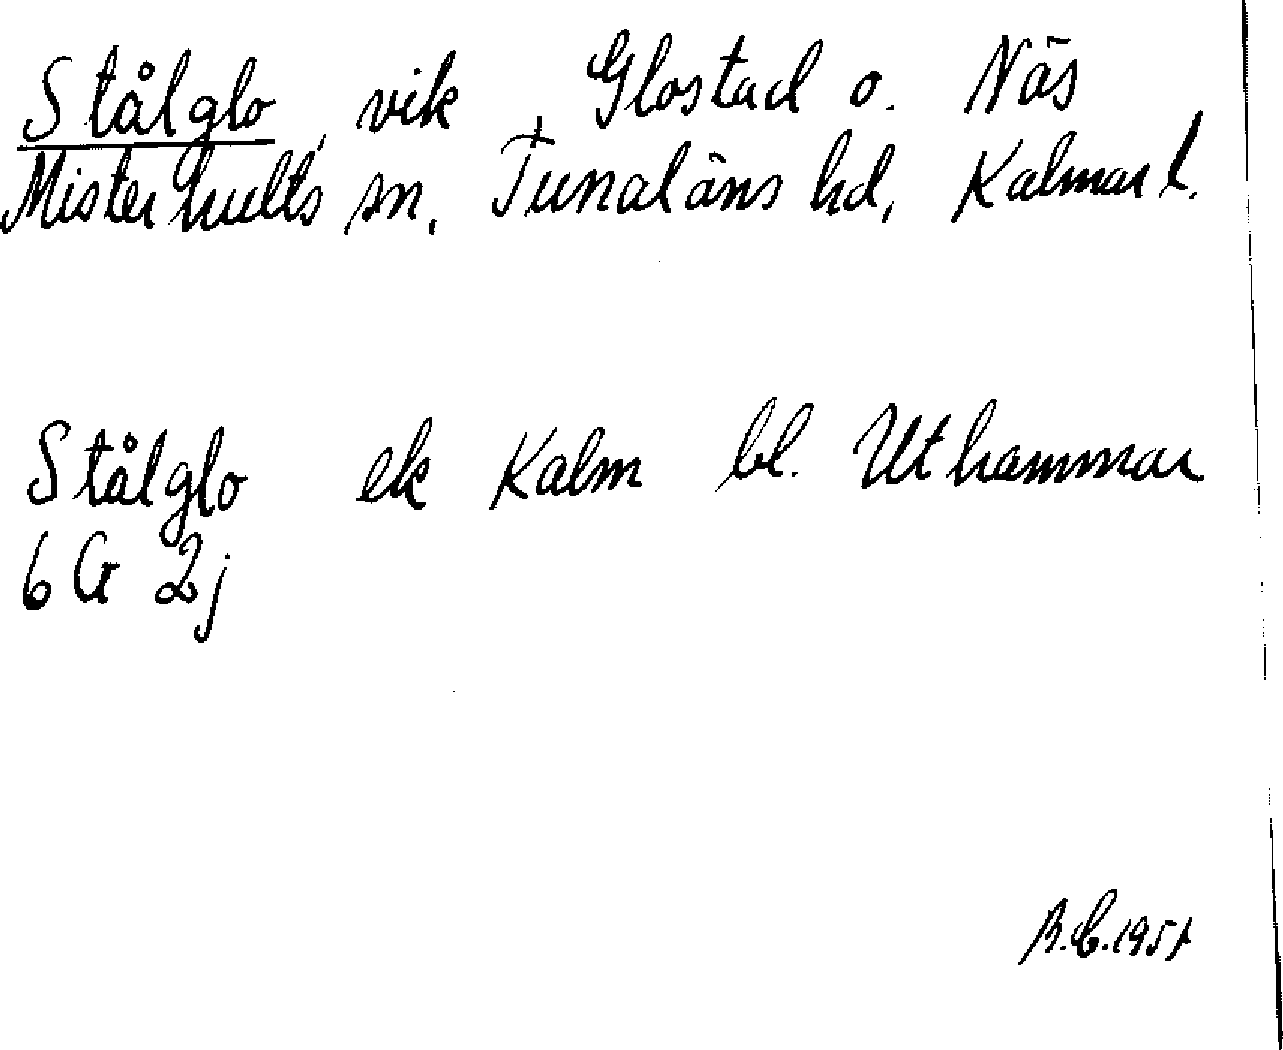 Stålglo, vik Glostad o. Näs
Misterhults sn, Tunaläns hd, Kalmar l.
Stålglo ek Kalm bl. Uthammar
6G 2j
1951